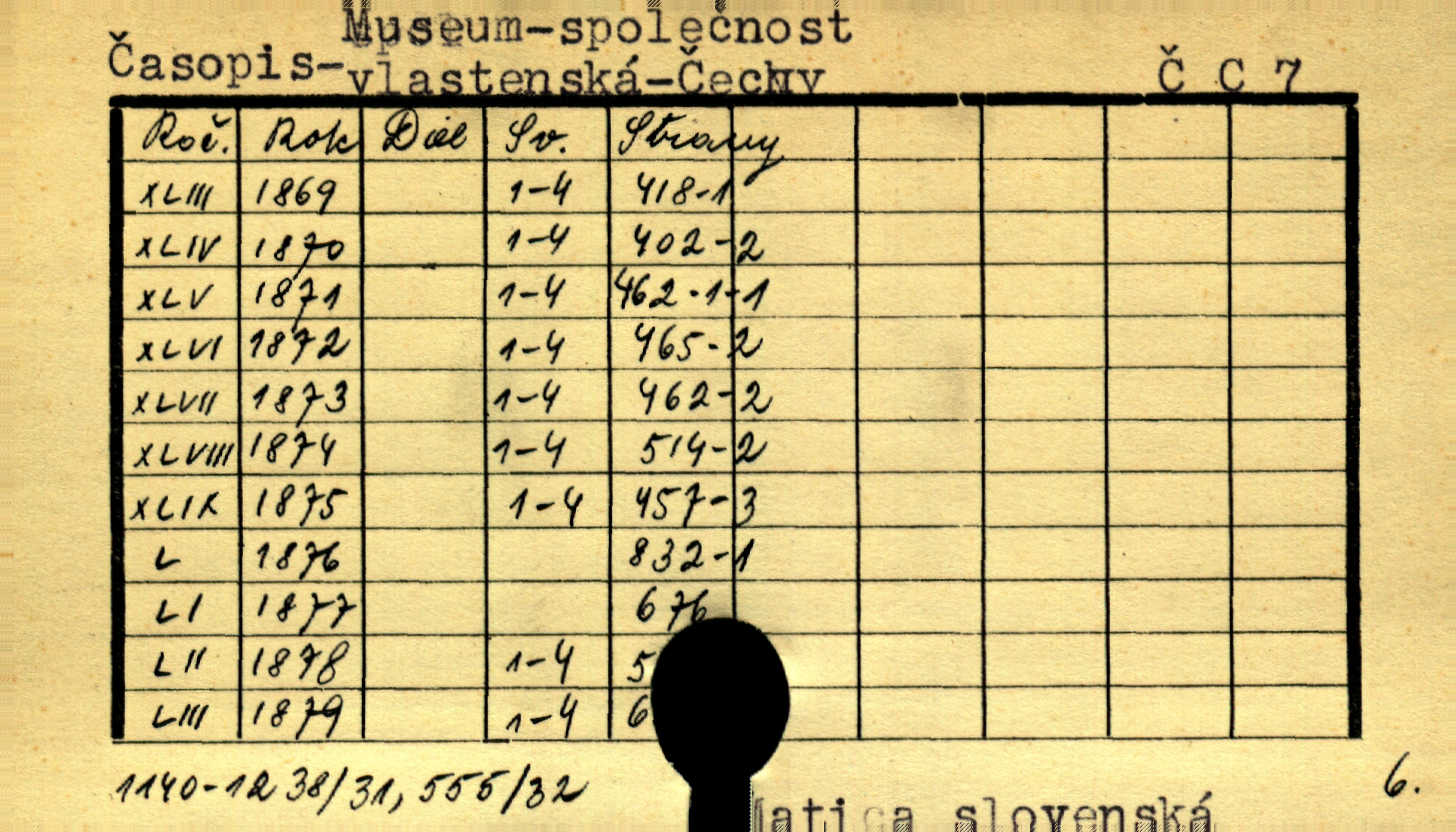 Museum-společnost
Časopis-vlastenská-Čechy Č C 7
Roč. Rok Diel Sv. Strany
XLIII 1869 1-4 418-1
XLIV 1870 1-4 402-2
XLV 1871 1-4 462-1-1
XLVI 1872 1-4 465-2
XLVII 1873 1-4 462-2
XLVIII 1874 1-4 514-2
XLIX 1875 1-4 457-3
L 1876 832-1
LI 1877 676
LII 1878 1-4 5
LIII 1879 1-4 6
1140-1238/31, 555/32 6.
Matica slovenská